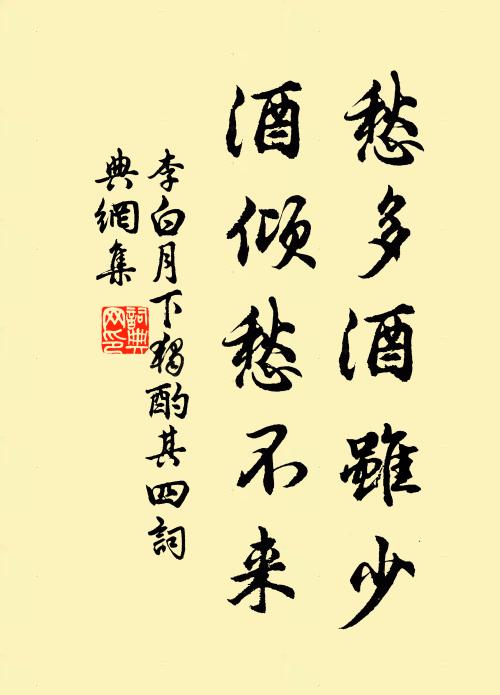 愁多酒雖少
酒傾愁不来
李白月下獨酌其四詞
典網集
詞典
网印